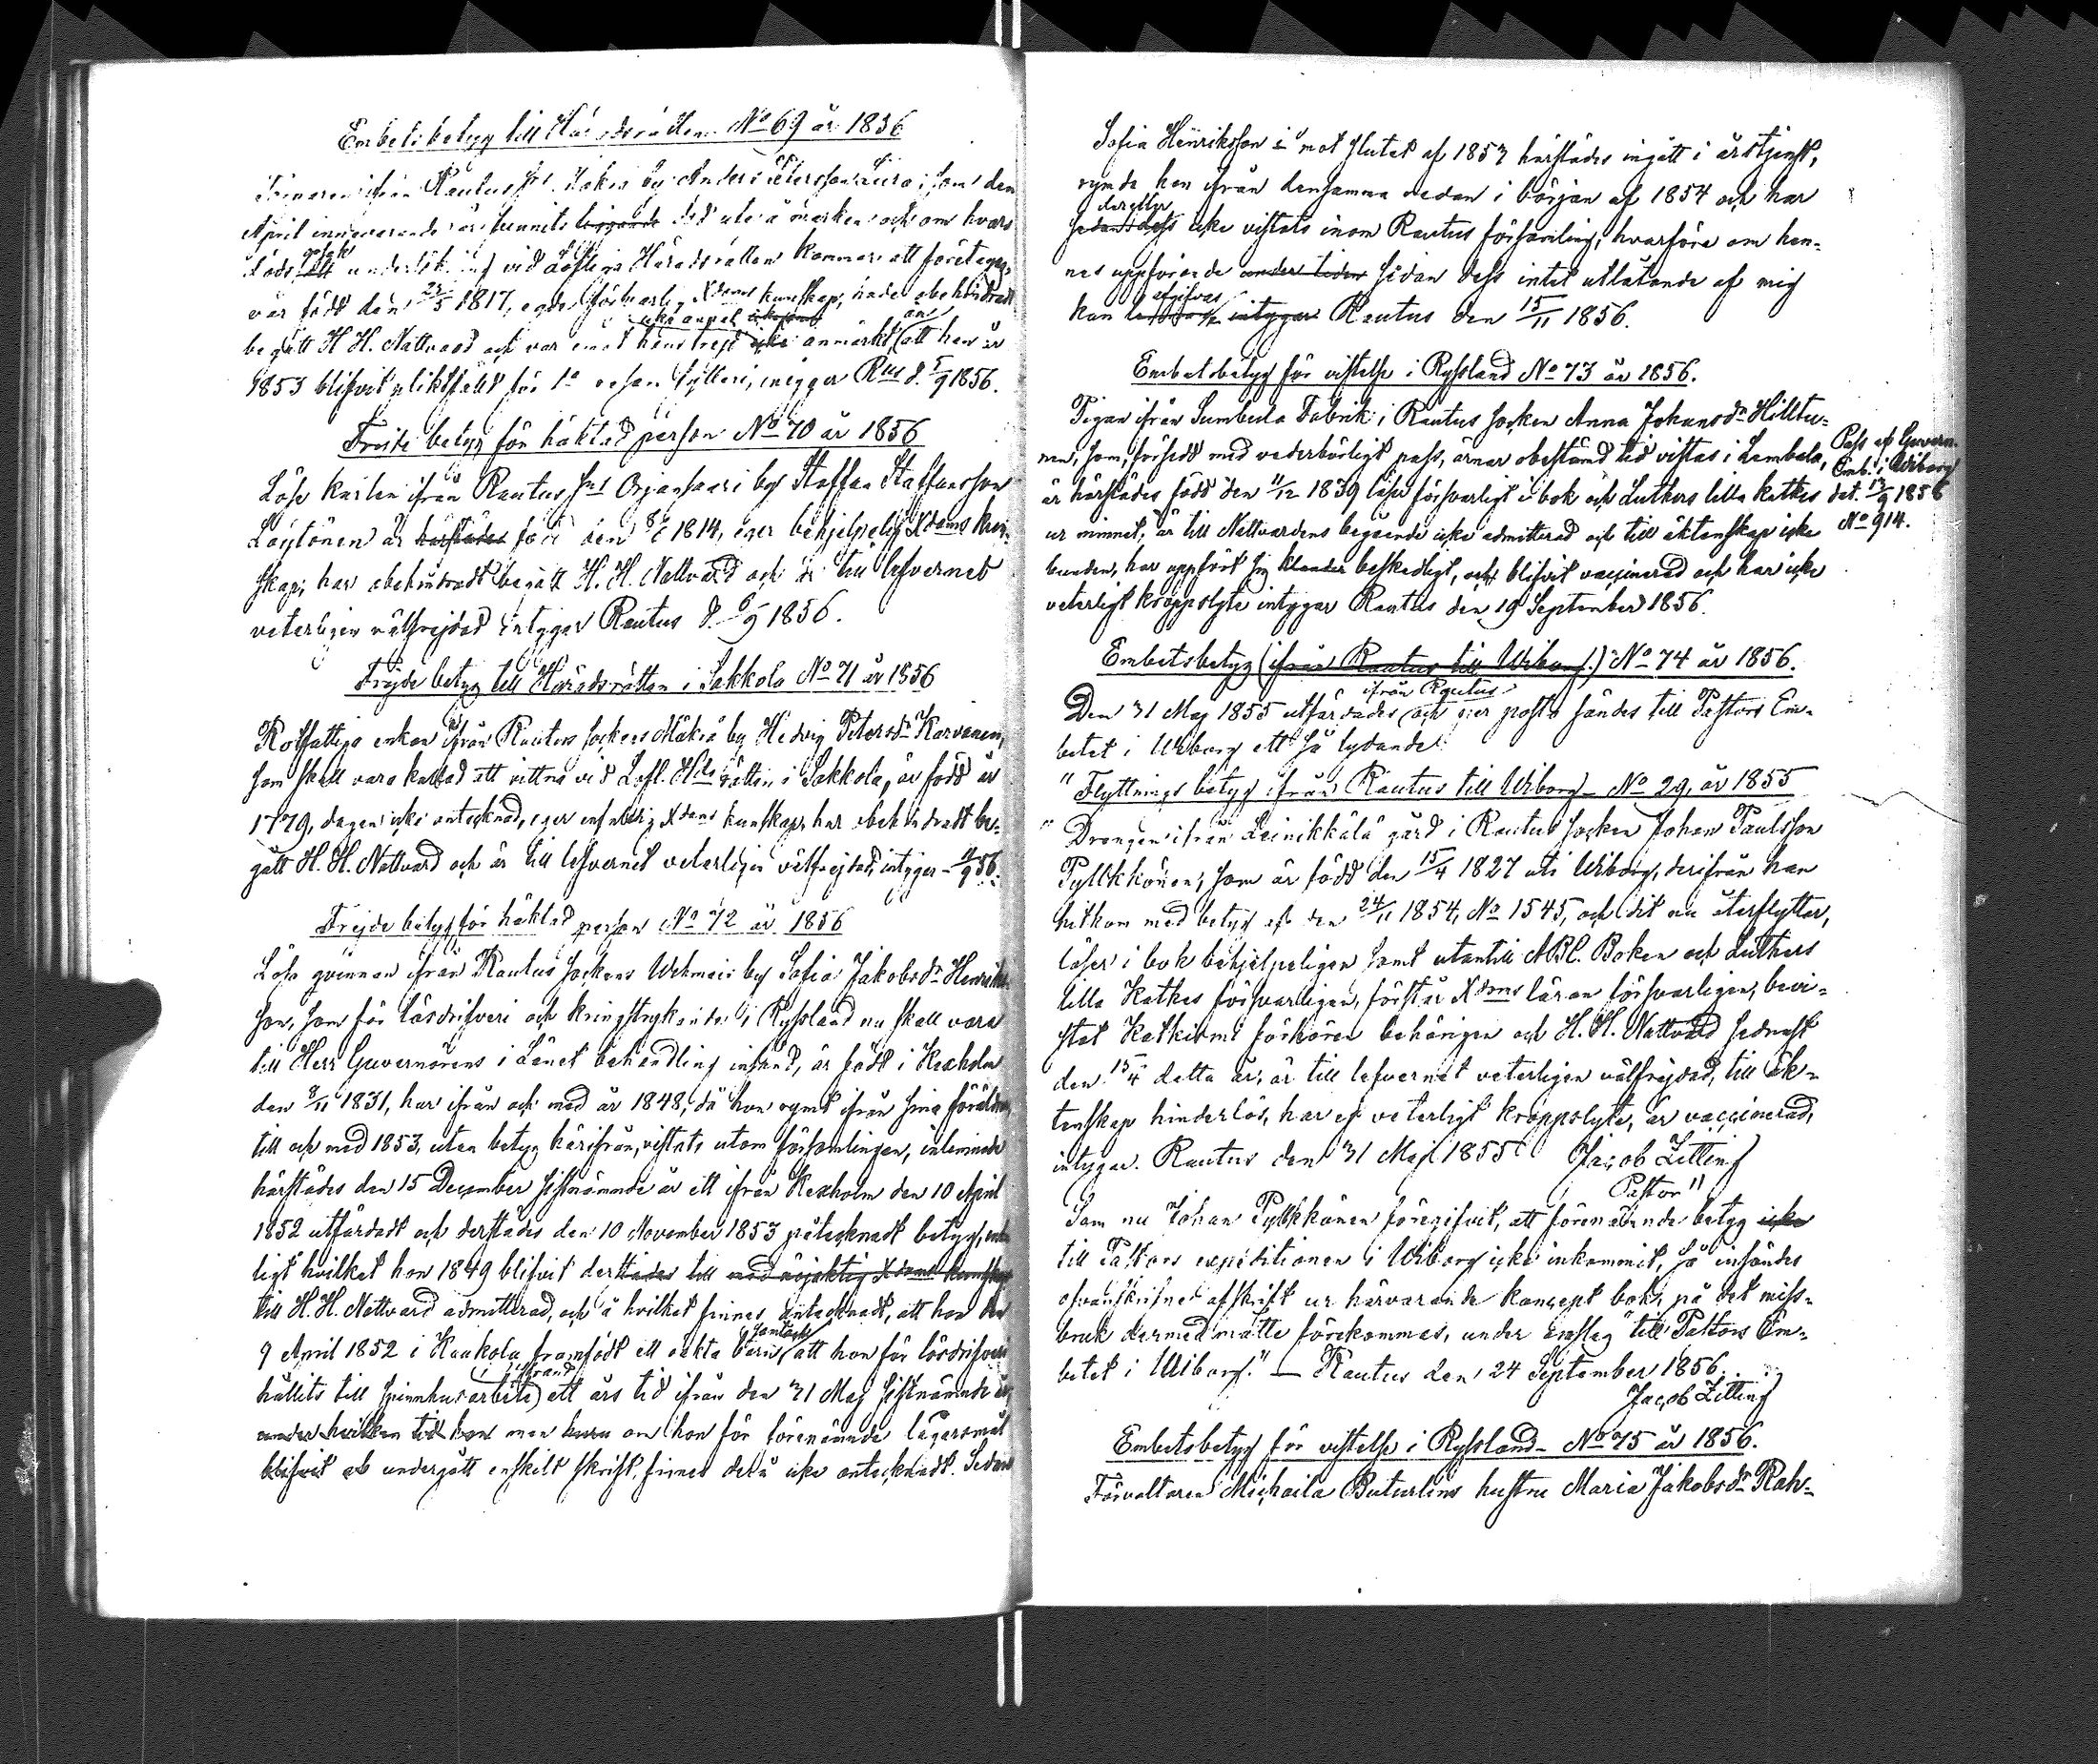 Embetsbetyg till Häradsrätten No 69 år 1856
ifrån Rautus Sns by Anders Petersson som den
April innevarande år funnits liggande död ute å marken och om hvars
döds sätt undersökning vid Loflige Häradsrätten kommer att företagas,
var född den 23/5 1817, egde försvarlig Xdoms kunskap, hade obehindradt
begått H. H. Nattvard och var emot hans frejd icke annat anmärkt, än att han år
1853 blifvit pliktfäld för 1a resan fylleri, intygar Rus d. 5/9 1856.
Frejde betyg för häktad person No 70 år 1856
Löse karlen ifrån Rautus Sns Orjansaari by Staffan Staffansson
Löytönen är härstädes född den 1814, eger behjelpelig Xdoms kun-
skap, har obehindradt begått H. H. Nattvard och är till lefvernet
veterligen välfrejdad intygar Rautus d. 6/9 1856.
Frejde betyg till Häradsrätten i Sakkola No 71 år 1856
Rotfattiga enkan ifrån Rautus sockens Mäkrä by Hedvig Petersdr Karvanen,
som skall vara kallad att vittna vid Lofl. Hds rätten i Sakkola, är född år
1779, dagen icke antecknad, eger enfaldig Xdoms kunskap, har obehindradt be-
gått H. H. Nattvard och är till lefvernet veterligen välfrejdad, intygar - 11/9 56.
Frejde betyg för häktad person No 72 år 1856
Lösa qvinnan ifrån Rautus sockens Wehmais by Sofia Jakobsdr Henriks-
son, som för lösdrifveri och kringstrykande i Ryssland nu skall vara
till Herr Guvernörens i Länet behandling insänd, är född i Kexholm
den 8/11 1831, har ifrån och med år 1848, då hon rymt ifrån sina föräldrar,
till och med 1853, utan betyg härifrån, vistats utom församlingen, inlemnade
härstädes den 15 December sistnämnde år ett ifrån Kexholm den 10 April
1852 utfärdadt och derstädes den 10 November 1853 påtecknadt betyg, en-
ligt hvilket hon 1849 blifvit derstädes till med nöjaktig Xdoms kunskap
till H. H. Nattvard admitterad, och å hvilket finnes antecknadt, att hon den
9 April 1852 i Kaukola framfödt ett oäkta barn, samt att hon för lösdrifveri
hållits till spinnhusarbete ett års tid ifrån den 31 Maj sistnämnde år,
under hvilken tid hon men om hon för förenämnde lägersmål
blifvit undergått enskilt skrift, finnes derå icke antecknadt. Sedan
Sofia Henriksson i mot slutet af 1853 härstädes ingått i årstjenst,
rymde hon ifrån densamma redan i början af 1854 och har
derefter
sedan dess icke vistats inom Rautus församling, hvarföre om hen-
nes uppförande under tiden sedan dess intet utlåtande af mig
kan afgifvas intygar Rautus den 15/11 1856.
Embetsbetyg för vistelse i Ryssland No 73 år 1856.
Pigan ifrån Sumbula Fabrik i Rautus socken Anna Johansdr Hilttu-
nen, som, försedd med vederbörligt pass, ärnar obestämd tid vistas i Lembala,
är härstädes född den 11/12 1839 läser försvarligt i bok och Luthers lilla kathes
ur minnet, är till Nattvardens begående icke admitterad och till äktenskap icke
bunden, har uppfört sig klander beskedligt, och blifvit vaccinerad och har icke
veterligt kroppslyte intygar Rautus den 19 September 1856.
Pass af Guvern.
Emb. i Wiborg
dat. 13/9 1856
No 914.
Embetsbetyg (ifrån Rautus till Wiborg.) No 74 år 1856.
Den 31 Maj 1855 utfärdades ifrån Rautus och per posto sändes till Pastors Em-
betet i Wiborg ett så lydande:
"Flyttnings betyg ifrån Rautus till Wiborg No 29, år 1855
"Drängen ifrån Leinikkälä gård i Rautus socken Johan Paulsson
Pylkkönen, som är född den 15/4 1827 uti Wiborg, derifrån han
hitkom med betyg af den 24/11 1854, No 1545, och dit nu återflytter,
läser i bok behjelpeligen samt utantill ABC. Boken och Luthers
lilla Kathes försvarligen, förstår Xdoms läran försvarligen, bevi-
stat Katkismi förhören behörigen och H. H. Nattvard sednast
den 15/4 detta år, är till lefvernet veterligen välfrejdad, till äk-
tenskap hinderlös, har ej veterligt kroppslyte, är vaccinerad,
intygar. Rautus den 31 Maj 1855. Jacob Zitting
Pastor"
Som nu Johan Pylkkönen föregifvit, att förenämnde betyg icke
till Pastors expeditionen i Wiborg icke inkommit, så insändes
ofvanskrifne afskrift ur härvarande koncept bok, på det miss-
bruk dermed måtte förekommas, under omslag till Pastors Em-
betet i Wiborg." — Rautus den 24 September 1856.
Jacob Zitting
Embetsbetyg för vistelse i Ryssland No 75 år 1856.
Förvaltaren Michaila Buturlins hustru Maria Jakobsdr Rah-